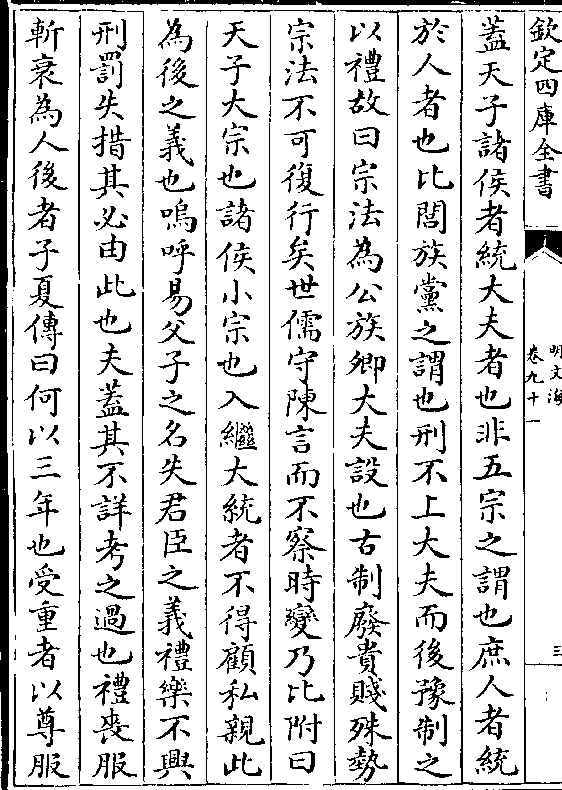 欽定四庫全書
明文海
卷九十一
三
蓋天子諸侯者統大夫者也非五宗之謂也庶人者統
於人者也比閭族黨之謂也刑不上大夫而後豫制之
以禮故曰宗法為公族卿大夫設也古制廢貴賤殊勢
宗法不可復行矣世儒守陳言而不察時變乃比附曰
天子大宗也諸侯小宗也入繼大統者不得顧私親此
為後之義也嗚呼易父子之名失君臣之義禮樂不興
刑罰失措其必由此也夫蓋其不詳考之過也禮喪服
斬衰為人後者子夏傳曰何以三年也受重者以尊服